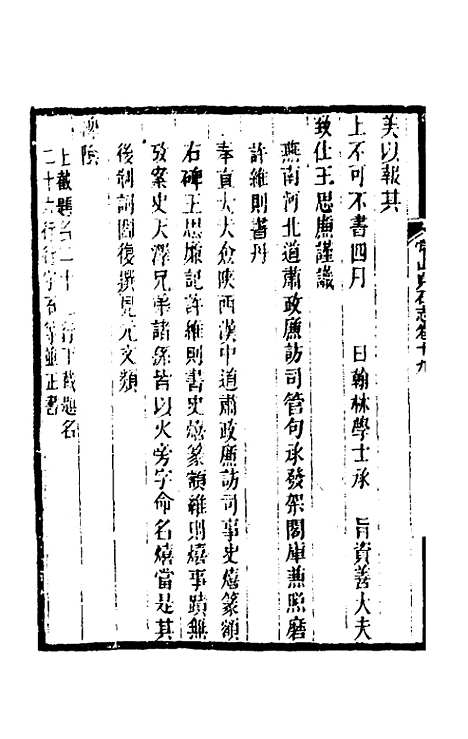 美以報其
上不可不書四月　日翰林學士承　旨資善大夫
致仕王思廉謹識
燕南河北道肅政廉訪司管句承發架閣庫兼照磨
許維則書丹
奉直大夫僉陝西漢中道肅政廉訪司事史熺篆額
右碑王思廉記許維則書史熺篆額維則熺事蹟無
攷案史天澤兄弟諸孫皆以火旁字命名熺當是其
後制詞閻復撰見元文類
碑陰
上截題名二十行下截題名
二十六行行字不等並正書
常山貞石志卷十九